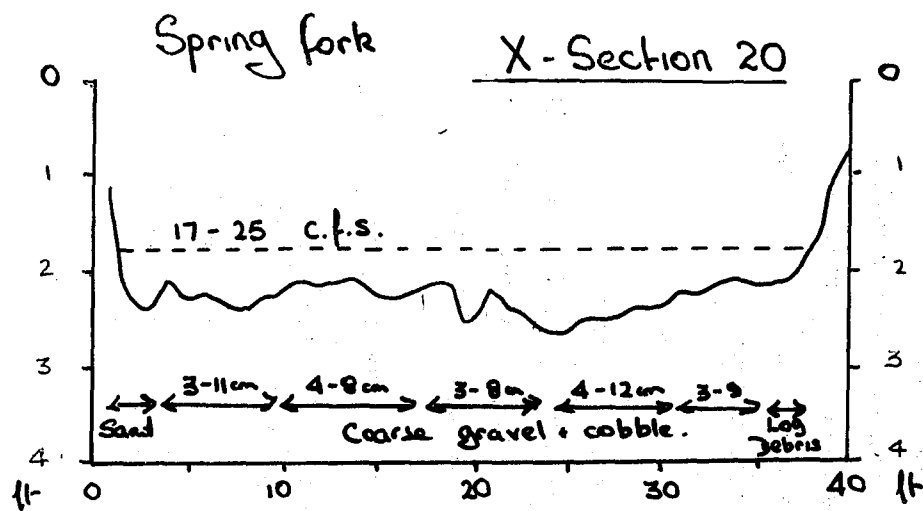 Spring fork X-Section 20
0 0
1 1
17-25 c.f.s.
2 2
3 3
3-11cm 4-8cm 3-8cm 4-12cm 3-9
Sand Coarse gravel + cobble. Log
Debris
4 4
ft 0 10 20 30 40 ft